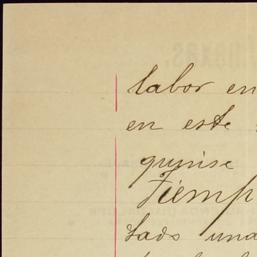 labor en
en este
quinse
Tiemp
tado una